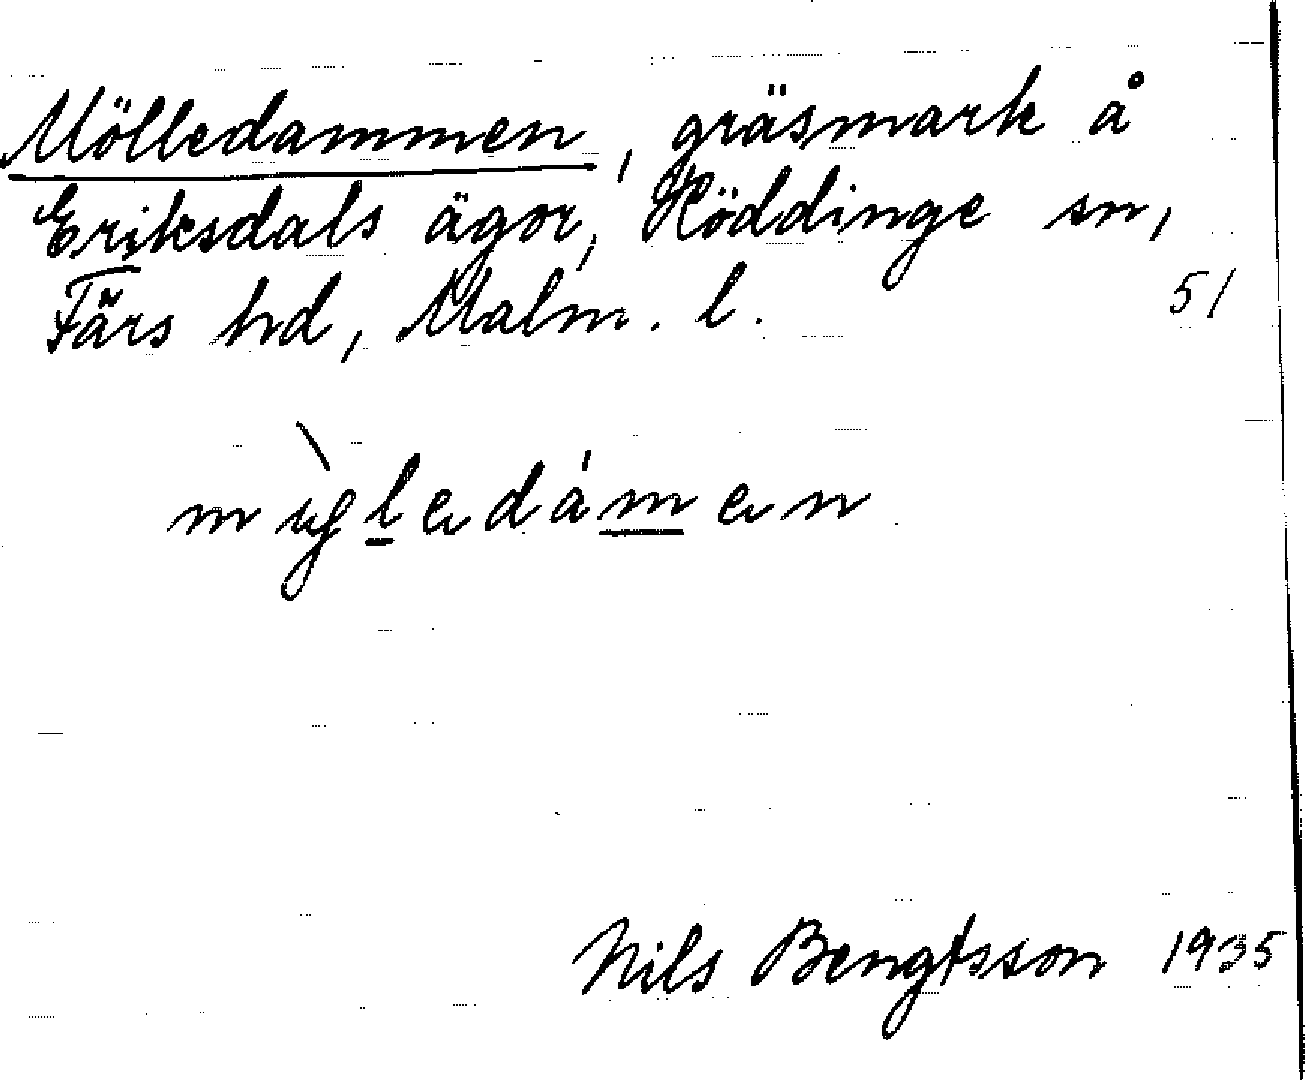 Mölledammen, gräsmark å
Eriksdals ägor, Röddinge sn,
Färs hd, Malm. l.
51
Nils Bengtsson 1935